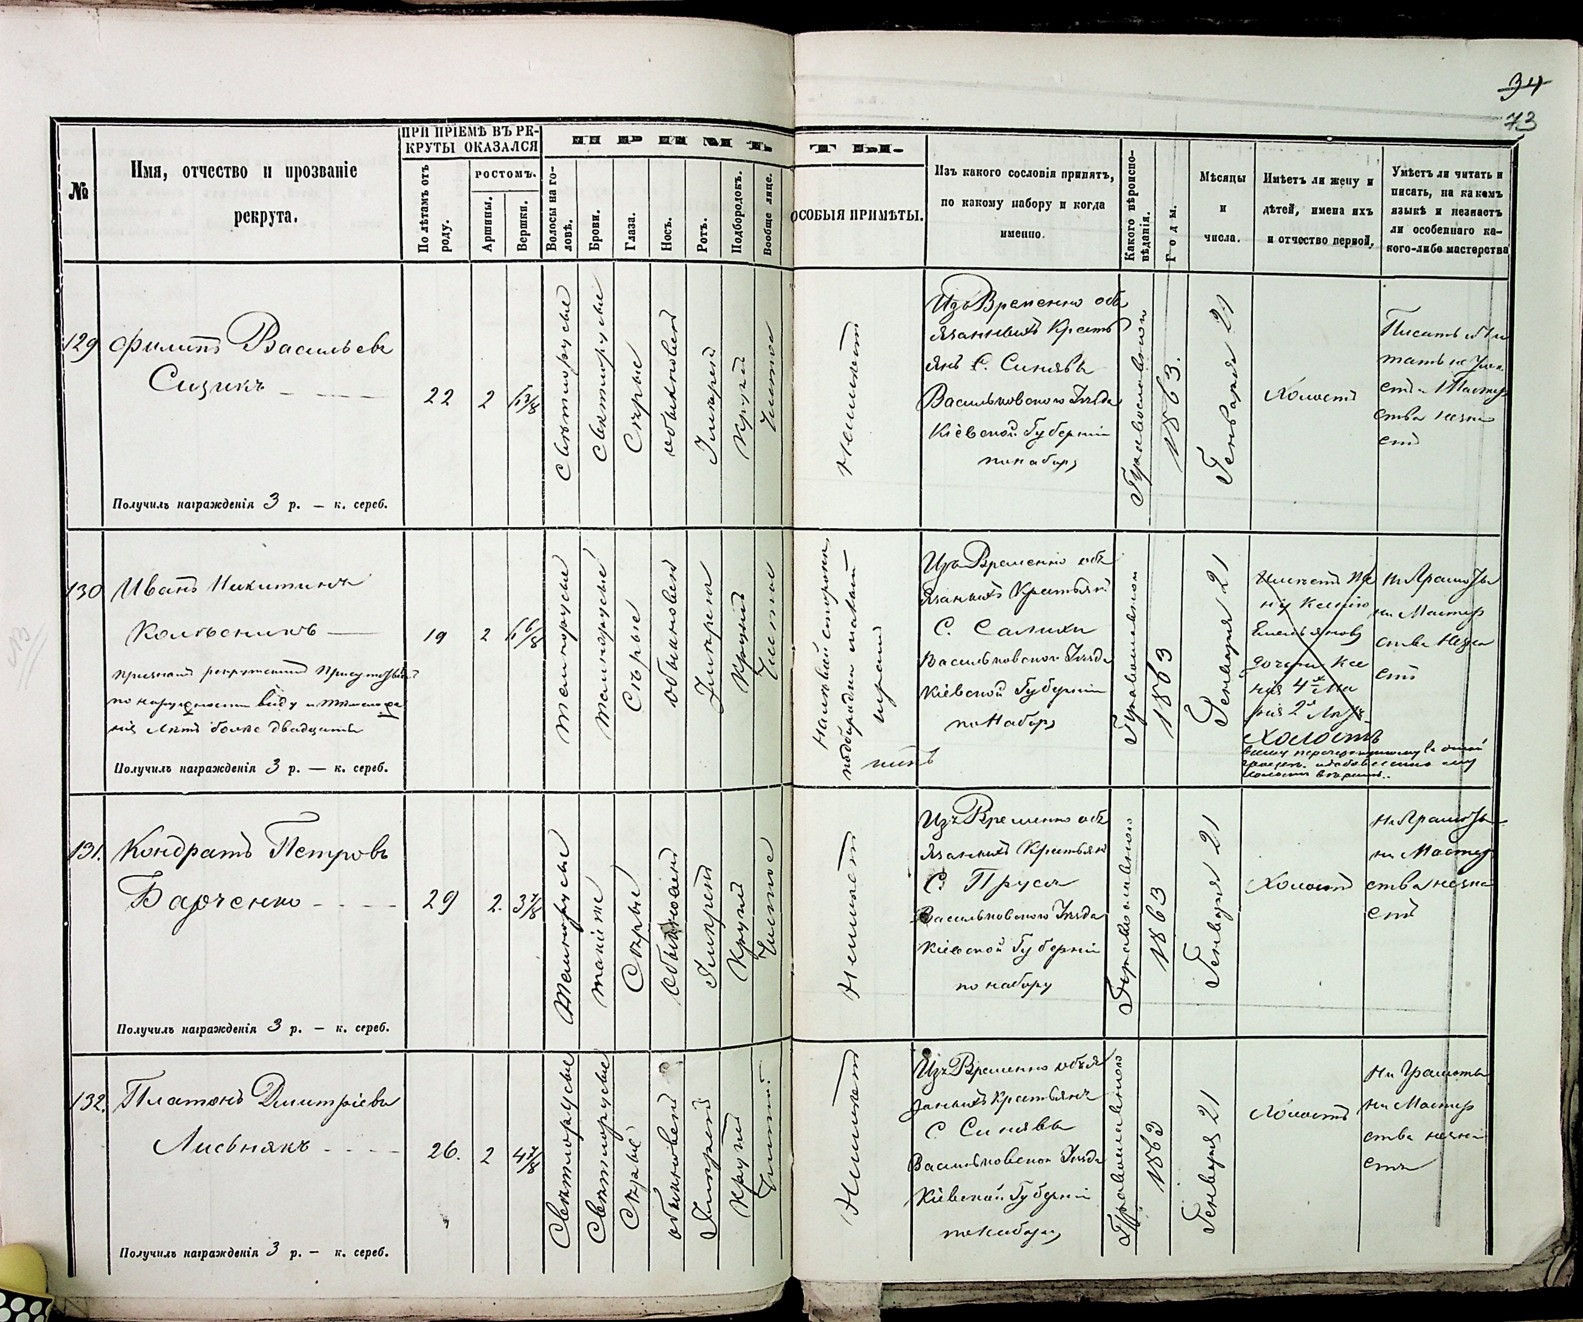 34
73
№
Имя, отчество и прозваніе
рекрута.
ПРИ ПРІЕМѢ ВЪ РЕ-
КРУТЫ ОКАЗАЛСЯ
По лѣтамъ отъ
роду.
ростомъ.
Аршины.
Вершки.
ПРИМѢТЫ.
Волосы на го-
ловѣ.
Брови.
Глаза.
Носъ.
Ротъ.
Подбородокъ.
Вообще лице.
ОСОБЫЯ ПРИМѢТЫ.
Изъ какого сословія принятъ,
по какому набору и когда
именно.
Какого вѣроиспо-
вѣданія.
Годы.
Мѣсяцы
и
числа.
Имѣетъ ли жену и
дѣтей, имена ихъ
и отчество первой,
Умѣетъ ли читать и
писать, на какомъ
языкѣ и незнаетъ
ли особеннаго ка-
кого-либо мастерства
129
Филипъ Васильевъ
Сизикъ
Получилъ награжденія 3 р. — к. сереб.
22
2
Свѣтлорусые
Свѣтлорусые
Сѣрые
обыкновен
Умѣрен
Кругл
Чистое
Неимѣетъ
Изъ Временно обя
занныхъ Кресть
янъ С. Синявы
Васильковского Уѣзда
Кіевской Губерніи
по набору
Православного
1863.
Генваря 21
Холостъ
Писать и Чи
тать не Умѣ
етъ Мастер
ства незна
етъ
130
Иванъ Никитинъ
Колесникъ
признанъ рекрутскимъ Присутствіем
по наружному виду и тѣлосложе
нія лѣтъ болѣе двадцати
Получилъ награжденія 3 р. — к. сереб.
19
2
Темнорусые
Темнорусые
Сѣрые
обыкновен
Умѣрен
Круглый
Чистое
На лѣвой сторонѣ
подбородка малый
шрамъ
Изъ Временно обя
занныхъ Крестьян
С. Салихи
Васильковского Уѣзда
Кіевской Губерніи
по Набору
Православного
1863
Генваря 21
Имѣетъ Же
ну Ксенію
Емельянову
дочери Ксе
нія 4 Ма
рія 2 лѣтъ
Холостъ
Не Грамотны
ни Мастер
ства Незна
етъ
131.
Кондратъ Петровъ
Барченко
Получилъ награжденія 3 р. — к. сереб.
29
2.
3 7/8
Темнорусые
такіеже
Сѣрые
Обыкновен
Умѣрен
Кругл
Чистое
Неимѣетъ
Изъ Временно обя
занныхъ Крестьян
С. Пруси
Васильковского Уѣзда
Кіевской Губерніи
по набору
Православного
1863
Генваря 21
Холостъ
Не Грамотны
ни Мастер
ства незна
етъ
132.
Платонъ Димитріевъ
Лисьнякъ
Получилъ награжденія 3 р. — к. сереб.
26.
2
Свѣтлорусые
Свѣтлорусые
Сѣрые
обыкновен
Умѣрен
Кругл
Чистое
Неимѣетъ
Изъ Временно обя
занныхъ Крестьянъ
С Синявы
Васильковского Уѣзда
Кіевской Губерніи
по Набору
Православного
1863
Генваря 21
Холостъ
Не Грамотны
ни Мастер
ства незна
етъ